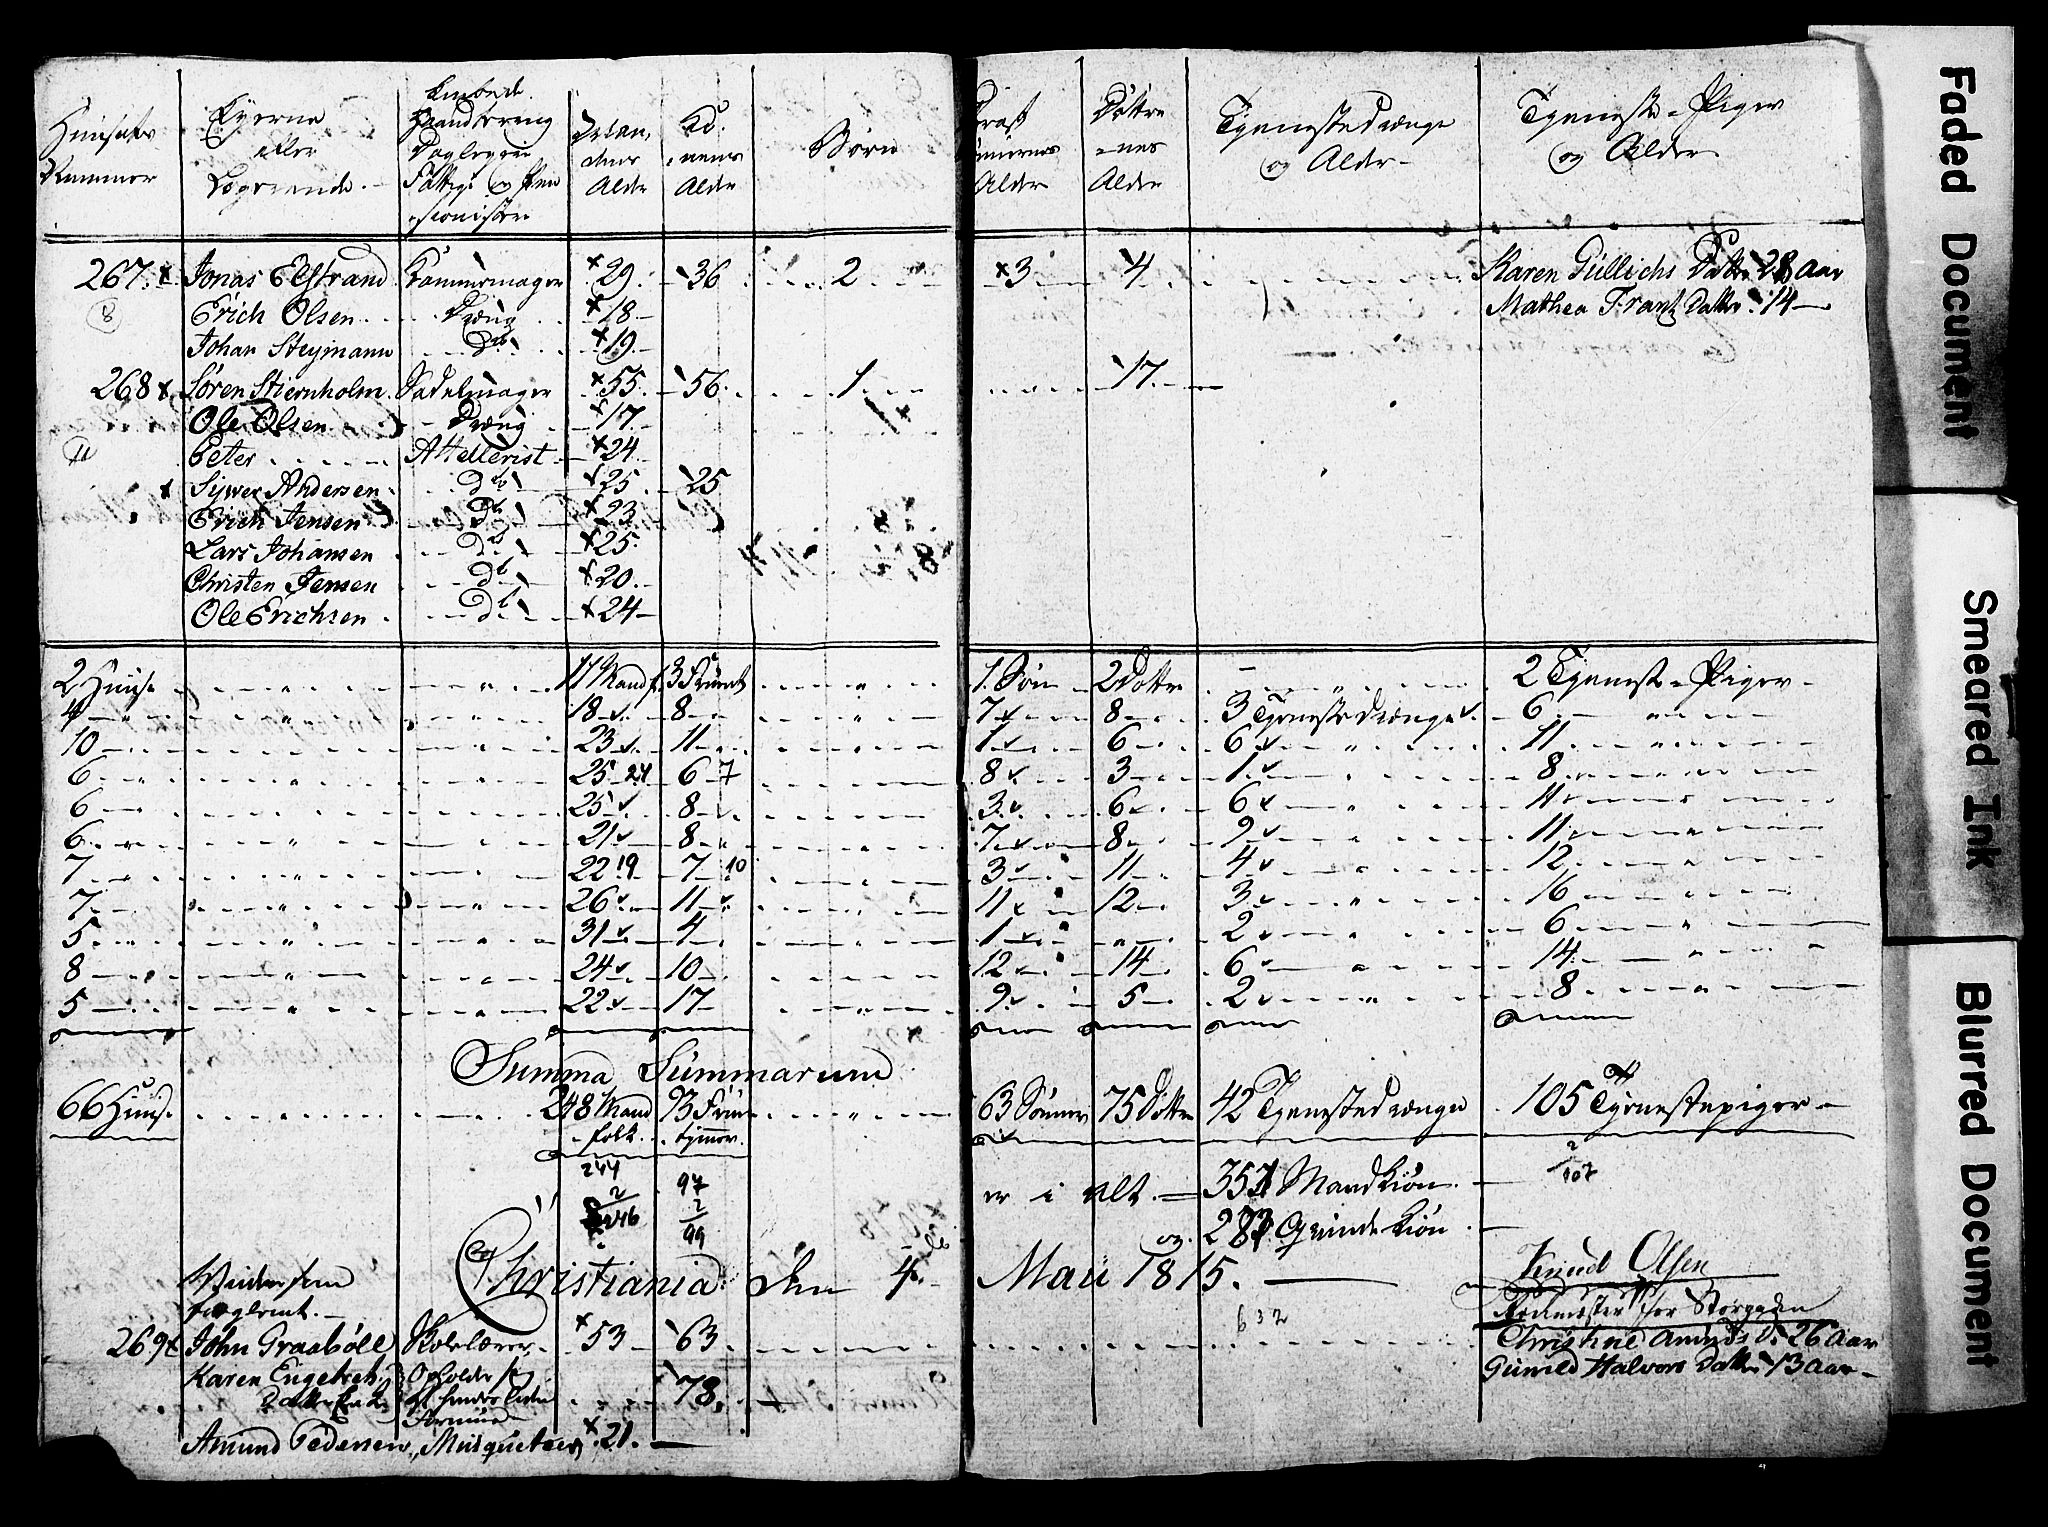 Huusets Nummer
Eyerne eller Logerende
Embede Haandtering Dagleyere Fattige og Pensionister
Alder
Konernes Alder
Børn
Alder
Døttrenes Alder
Tjenestedrænge og Alder
Tjeneste-Piger og Alder
267. Jonas Elstrand Kammager 29. 36 2 3 4 Karen Gullichs Datter 28 Aar
8 Erich Olsen Dræng 18 Mathea Frantz Datter 14
Johan Steymann Do 19
268 Søren Stiernholm Sadelmager 55. 56. 1 17.
Ole Olsen Dræng 17.
11 Peter Attellerist 24
Sywer Andersen Do 25. 25
Erich Jensen Do 23
Lars Johansen Do 25.
Christen Jensen Do 20.
Ole Erichsen Do 24
2 Huuse 17 Mandf. 3 Fruent. 1. Søn 2 Dottre 2 Tjeneste-Piger
4 18 8 7 8 3 Tjenestedrænge 6
10 23 11 1 6 6 11
6 25 24 6 7 8 3 1 8
6 25 8 3 6 6 11
6 21 8 7 8 9 11
7 22 19 7 10 3 11 4 12
7 26 11 11 12 3 16
5 31 4 1 2 6
8 24 10 12 14 6 14
5 22 17 9 5 2 8
Summa Summarum
66 Huuse 248 Mandfolk 93 Fruentimer 63 Sønner 75 Dottre 42 Tjenestedrænge 105 Tjenestepiger
244 97 er i alt 357 Mandkiøn 2
2 2 107
246 99 og 287 Qvindekiøn
Christiania den 4 Maii 1815. Knud Olsen
632 Rodemester for Storgaden
269 John Graabøll Skolelærer 53 63 Christine Amunds D. 26 Aar
Karen Engebret Datter Enke Opholder sig af hendes liden Formue 78. Gunild Halvors Datter 13 Aar
Amund Pedersen, Musqueteer 21.
Faded Document
Smeared Ink
Blurred Document